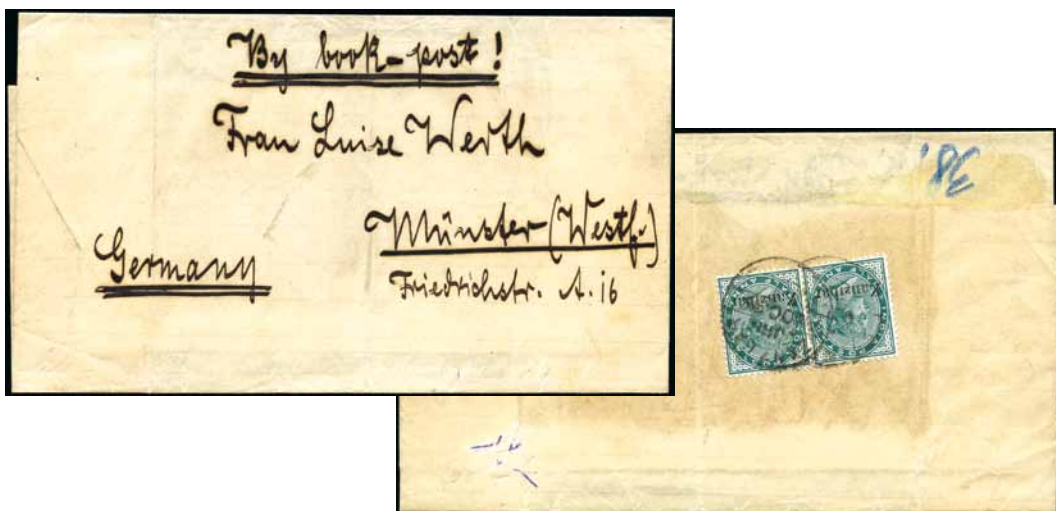 By book-post!
Frau Luise Werth
Münster (Westf.)
Germany
Friedrichstr. A. 16
38.
Zanzibar
Zanzibar